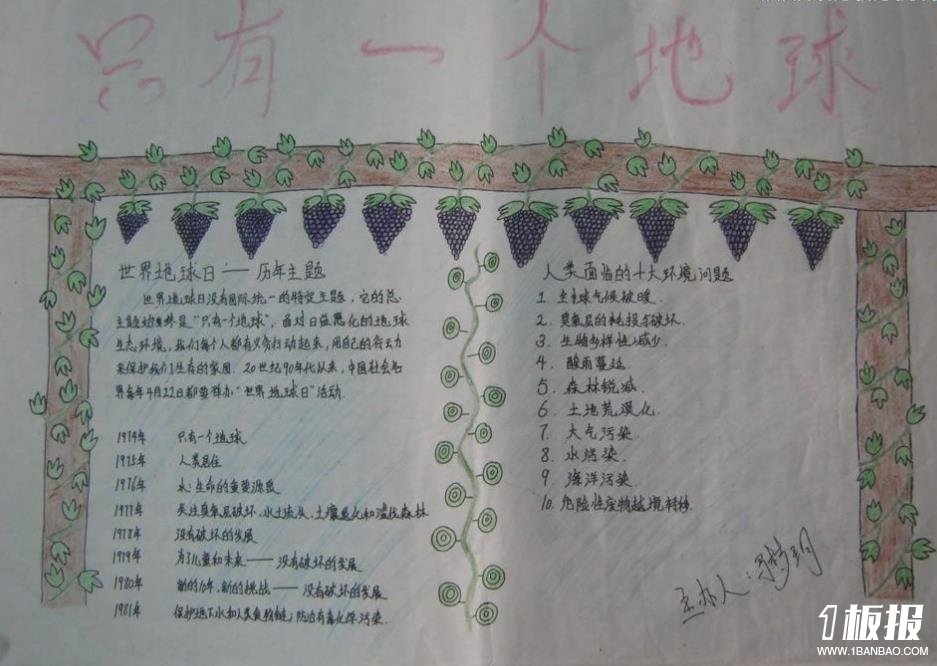 只有一个地球
世界地球日——历年主题
世界地球日没有国际统一的特定主题，它的总
主题始终是"只有一个地球"，面对日益恶化的地球
生态环境，我们每个人都有义务行动起来，用自己的行动
来保护我们生存的家园．20世纪90年代以来，中国社会各
界每年4月22日都要举办"世界地球日"活动．
1974年 只有一个地球
1975年 人类居住
1976年 水：生命的重要源泉
1977年 关注臭氧层破坏、水土流失、土壤退化和滥伐森林
1978年 没有破坏的发展
1979年 为了儿童和未来——没有破坏的发展
1980年 新的10年，新的挑战——没有破坏的发展
1981年 保护地下水和人类食物链；防治有毒化学污染．
人类面临的十大环境问题
1. 全球气候被暖．
2. 臭氧层的耗损与破坏．
3. 生物多样性减少．
4. 酸雨蔓延
5. 森林锐减．
6. 土地荒漠化．
7. 大气污染．
8. 水污染．
9. 海洋污染．
10. 危险性废物越境转移．
主办人：
1板报
WWW.1BANBAO.COM